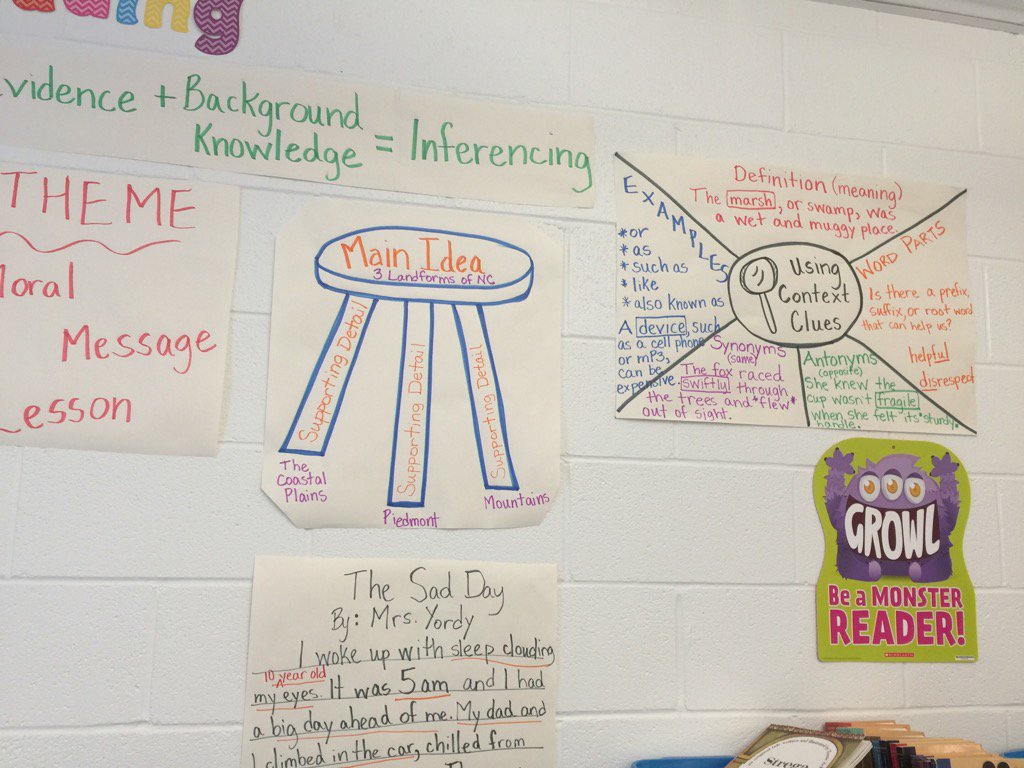 vidence + Background
Knowledge = Inferencing
THEME
Moral
Message
Lesson
Main Idea
3 Landforms of NC
Supporting Detail
Supporting Detail
Supporting Detail
The
Coastal
Plains
Piedmont
Mountains
Using
Context
Clues
Definition (meaning)
The marsh, or swamp, was
a wet and muggy place.
EXAMPLES
*or
*as
*such as
*like
*also known as
A device, such
as a cell phone
or mp3,
can be
expensive.
Synonyms
(same)
The fox raced
swiftly through
the trees and *flew*
out of sight.
Antonyms
(opposite)
She knew the
cup wasn't fragile
when she felt *its* sturdy
handle.
WORD PARTS
Is there a prefix,
suffix, or root word
that can help us?
helpful
disrespect
GROWL
Be a MONSTER
READER!
SCHOLASTIC
The Sad Day
By: Mrs. Yordy
I woke up with sleep clouding
10 year old
my eyes. It was 5am and I had
a big day ahead of me. My dad and
I climbed in the car, chilled from